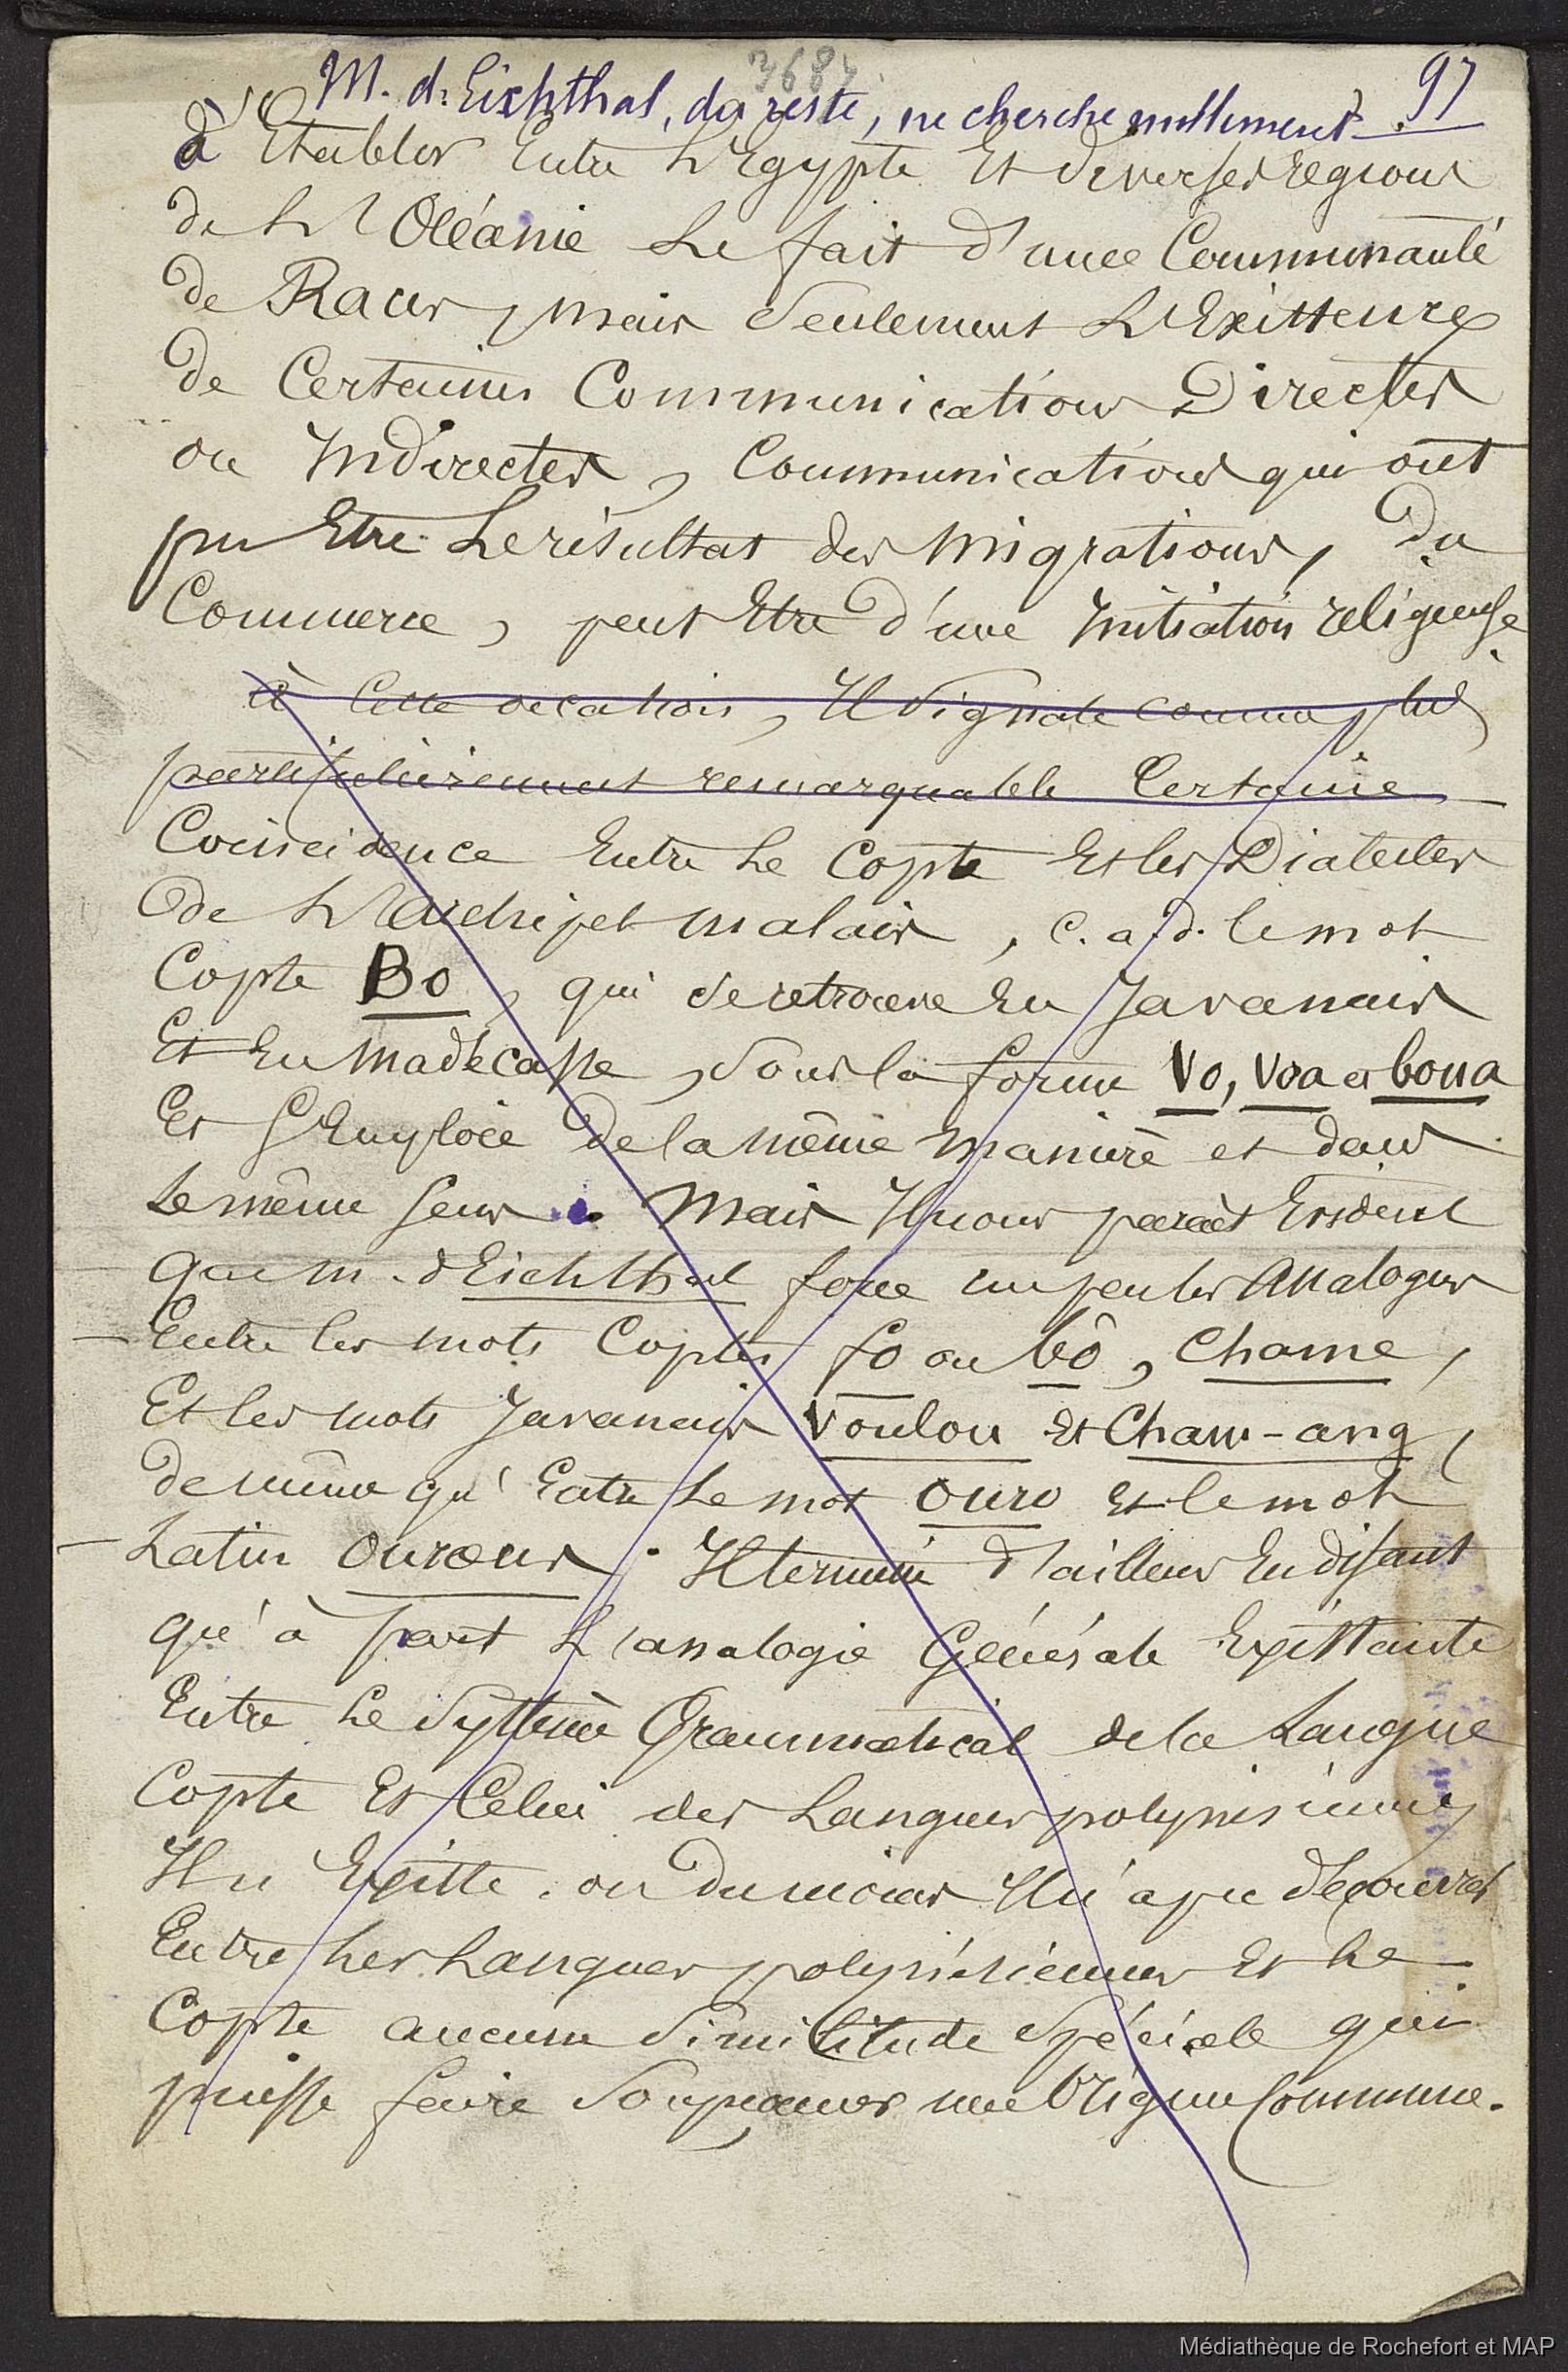 3684
97
M. d'Eichthal, du reste, ne cherche nullement
à Etablir Entre L'Egypte Et diverses regions
de L'Océanie Le fait d'une Communauté
de Races, mais Seulement L'Existence
de Certaines Communications Directes
ou Indirectes, Communications qui ont
pu Etre Le résultat des migrations, du
Commerce, peut Etre d'une Initiation religieuse
à Cette occasion, Il Signale comme plus
particulièrement remarquable Certaine
Coincidence Entre Le Copte Et les Dialectes
de L'archipel malais, c. a. d. le mot
Copte Bo, qui se retrouve En Javanais
Et En madécasse, Sous la forme Vo, Voa et boua
Et S'Emploie de la même manière et dans
Le même sens. Mais Il nous paraît Evident
que m. d'Eichthal force un peu les Analogies
Entre les mots Coptes fo ou bô, Chame,
Et les mots Javanais Voulou Et Cham-ang,
de même qu'Entre Le mot Ouro Et le mot
Latin Ouroeus. Il termine d'ailleurs En disant
qu'à part L'analogie Générale Existante
Entre Le Système Grammatical de la Langue
Copte Et Celui des Langues polynésiennes
Il n'Existe, ou du moins Il n'a pu découvrir
Entre Les Langues polynésiennes Et Le
Copte aucune Similitude Spéciale qui
puisse faire Soupçonner une Origine Commune.
Médiathèque de Rochefort et MAP